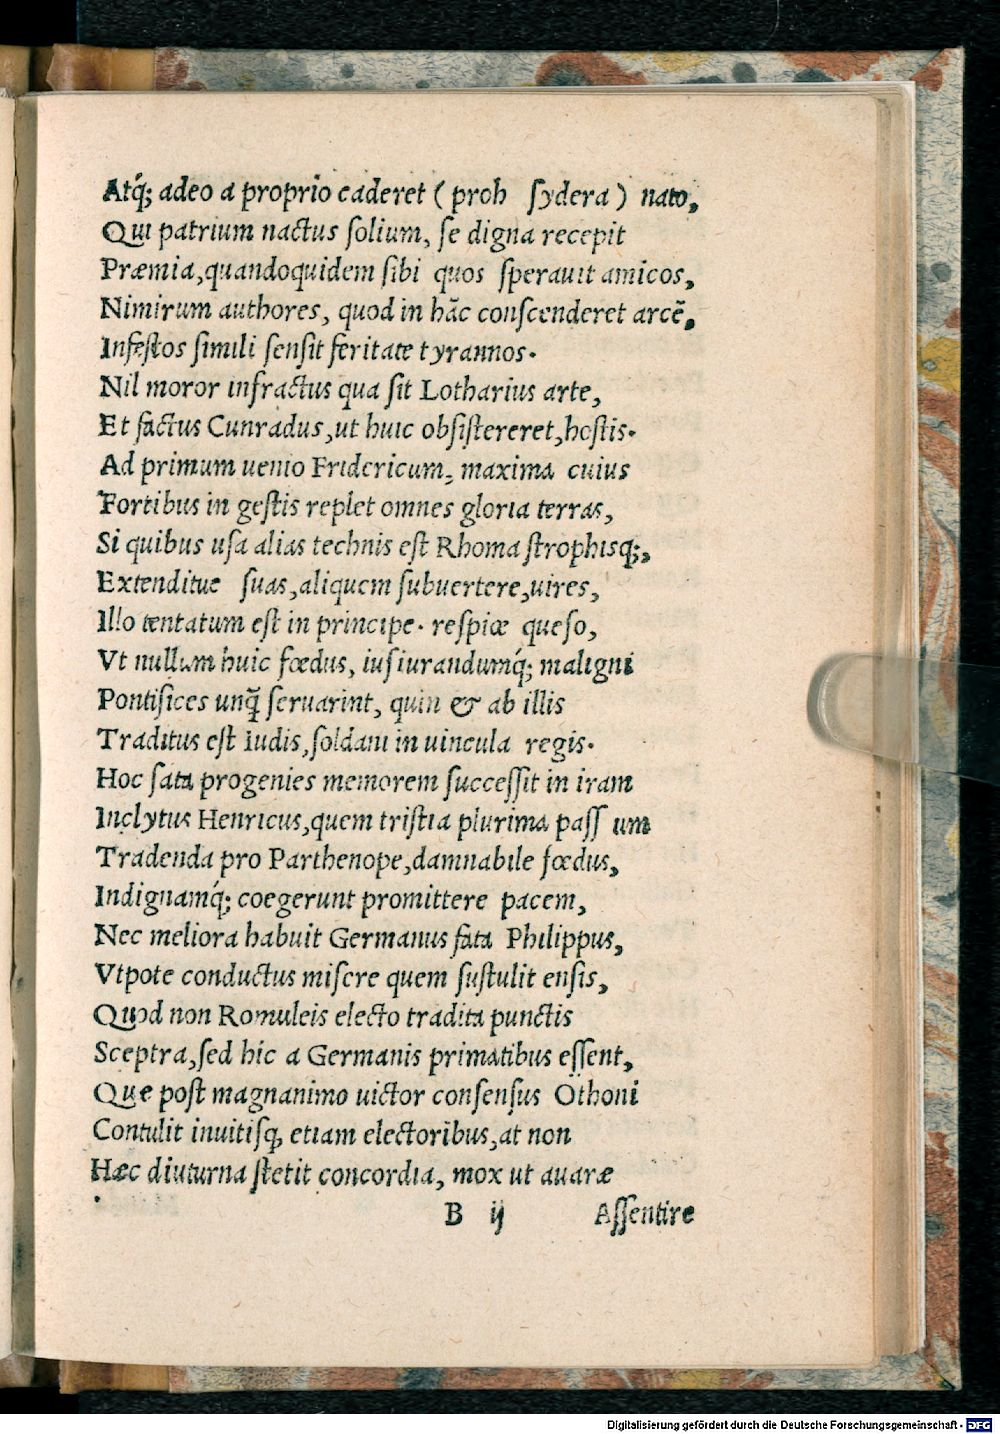 Atq́; adeo a proprio caderet ( proh ſydera ) nato,
Qui patrium nactus ſolium, ſe digna recepit
Præmia,quandoquidem ſibi quos ſperauit amicos,
Nimirum authores, quod in hãc conſcenderet arcẽ,
Infeſtos ſimili ſenſit feritate tyrannos.
Nil moror infractus qua ſit Lotharius arte,
Et factus Cunradus,ut huic obſiſtereret,hoſtis.
Ad primum uenio Fridericum, maxima cuius
Fortibus in geſtis replet omnes gloria terras,
Si quibus uſa alias technis eſt Rhoma ſtrophisq;,
Extenditue ſuas,aliquem ſubuertere,uires,
Illo tentatum eſt in principe. reſpice queſo,
Vt nullum huic fœdus, iuſiurandumq́; maligni
Pontifices unq̃ ſeruarint, quin & ab illis
Traditus eſt Iudis,ſoldani in uincula regis.
Hoc ſata progenies memorem ſucceſſit in iram
Inclytus Henricus,quem triſtia plurima paſſ um
Tradenda pro Parthenope,damnabile fœdus,
Indignamq́; coegerunt promittere pacem,
Nec meliora habuit Germanus fata Philippus,
Vtpote conductus miſere quem ſuſtulit enſis,
Quod non Romuleis electo tradita punctis
Sceptra,ſed hic a Germanis primatibus eſſent,
Que poſt magnanimo uictor conſenſus Othoni
Contulit inuitiſq, etiam electoribus,at non
Hæc diuturna ſtetit concordia, mox ut auaræ
B ij Aſſentire
Digitalisierung gefördert durch die Deutsche Forschungsgemeinschaft - DFG